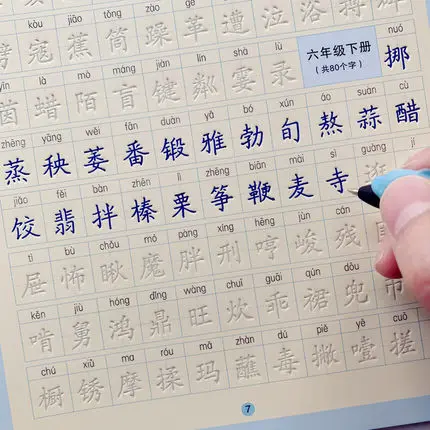 寇 蕉 简 躁 革 遭 泣 浴
là mò máng jiàn lín shà lù nuó
茵 蜡 陌 盲 键 粼 霎 录 六年级下册 挪
(共80个字)
zhēng yāng wěi fān duàn yǎ bó xún áo suàn cù
蒸 秧 萎 番 锻 雅 勃 旬 熬 蒜 醋
jiǎo fěi bàn zhēn lì zhēng biān mài sì guàng jì
饺 翡 拌 榛 栗 筝 鞭 麦 寺 逛
tì bù chǒu mó pàng xíng hēng jùn cán
屉 怖 瞅 魔 胖 刑 哼 峻 残
kěn jiù hóng dǐng wàng chuī guāi qún dōu
啃 舅 鸿 鼎 旺 炊 乖 裙 兜 币
chú xiù mó róu mǎ zhàn dú piē yē cuō
橱 锈 摩 揉 玛 蘸 毒 撇 噎 搓
7